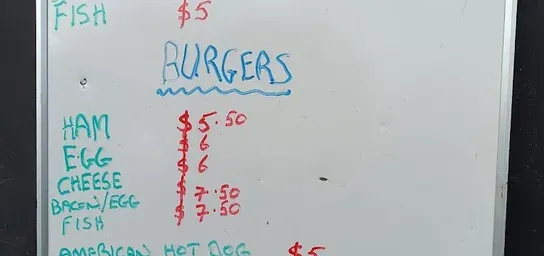 FISH $5
BURGERS
HAM $5.50
EGG $6
CHEESE $6
BACON/EGG $7.50
FISH $7.50
AMERICAN HOT DOG $5